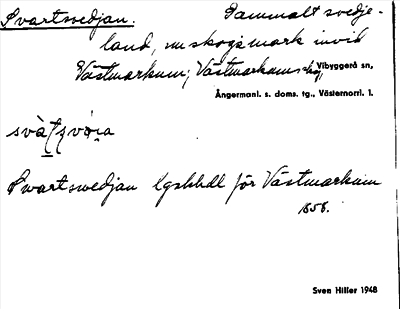 Svartsvedjan. Gammalt svedje-
land, nu skogsmark invid
Västmarkum; Västmarkums Vibyggerå sn,
Ångermanl. s. doms. tg., Västernorrl. l.
Swartswedjan Lgskhdl för Västmarkum
1858.
Sven Hiller 1948